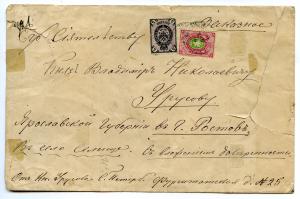 Заказное
Его Сіятельству
Князю Владиміру Николаевичу
Урусову
Ярославской Губерніи въ г. Ростовъ
Въ село
Отъ Кн. Урусова С. Петерб. Фурштатская д. № 25